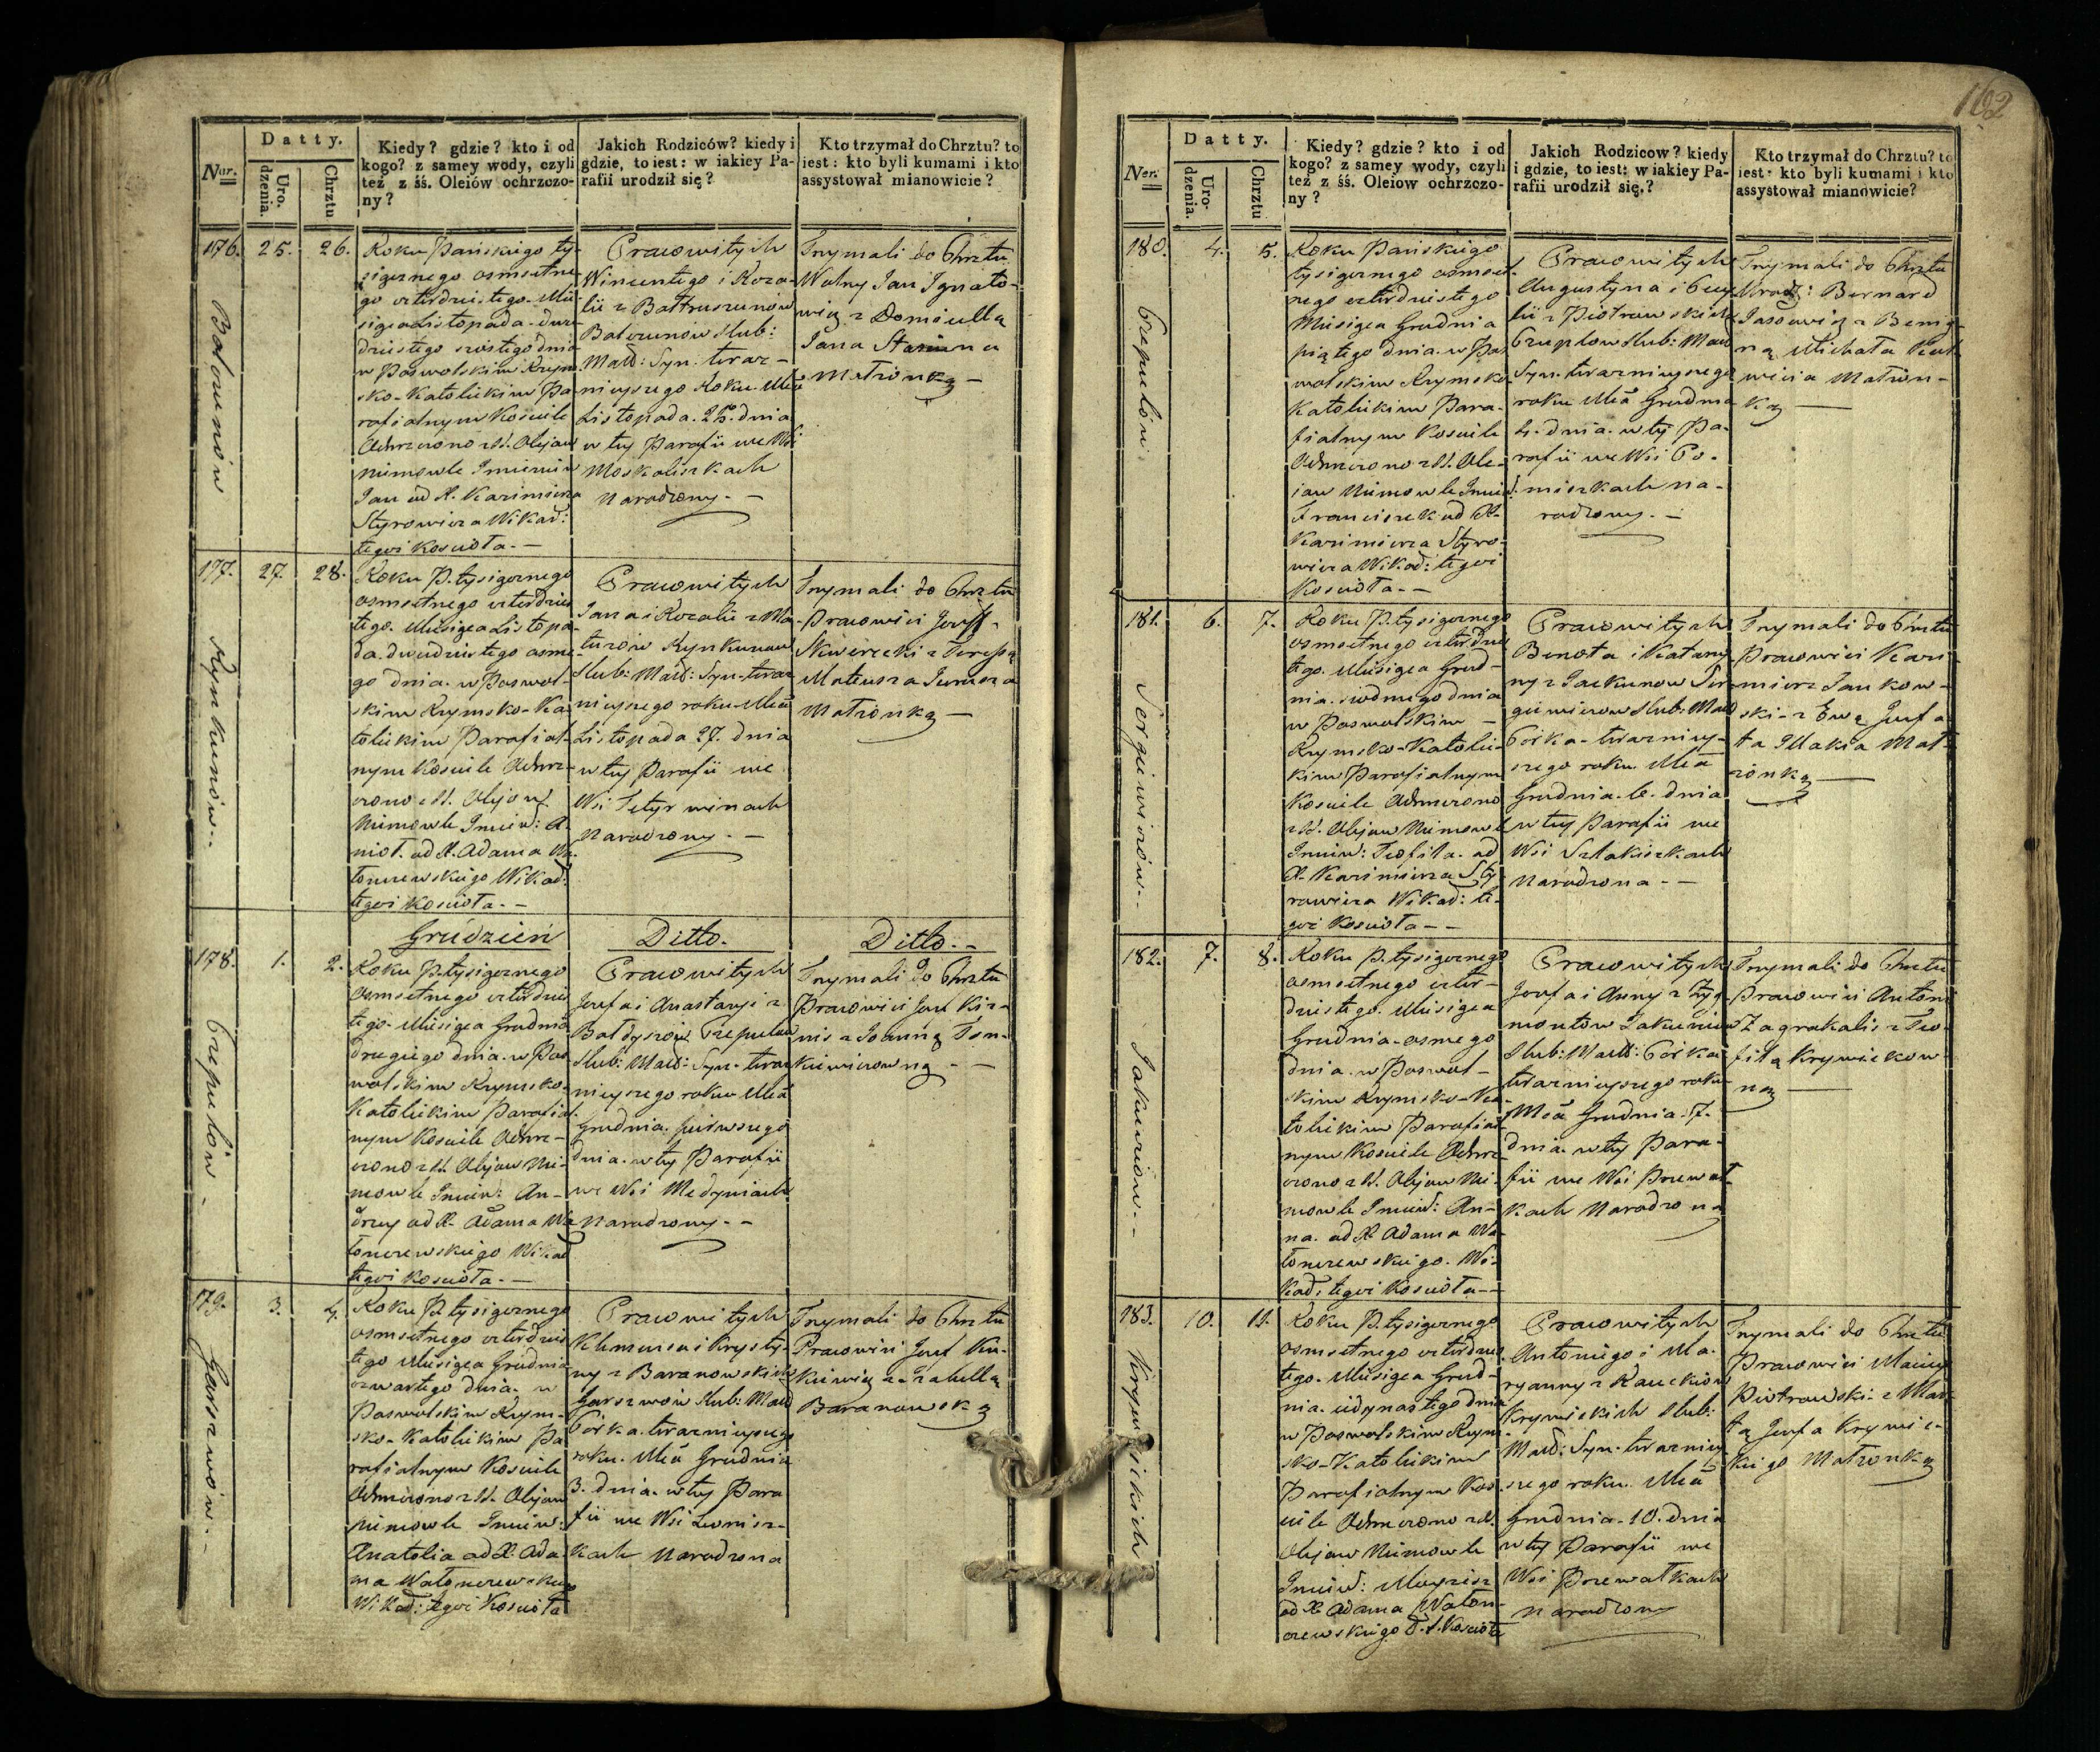 162
Datty.
Ner.
Uro-
dzenia.
Chrztu
Kiedy? gdzie? kto i od
kogo? z samey wody, czyli
też z śś. Oleiów ochrzczo-
ny?
Jakich Rodziców? kiedy i
gdzie, to iest: w iakiey Pa-
rafii urodził się?
Kto trzymał do Chrztu? to
iest: kto byli kumami i kto
assystował mianowicie?
176.
25.
26.
Roku Pańskiego ty-
siącznego osmsetne-
go czterdziestego Mie-
siąca Listopada dwu-
dziestego szóstego dnia
w Poswolskim Rzym-
sko-Katolickim Pa-
rafialnym Kosciele
Ochrzczono z SS. Olejow
Niemowle Imieniem
Jan od X. Kazimierza
Styrowicza Wikad:
tegoż Koscioła. —
Prawowitych
Wincentego i Roza-
lii z Bałtruszunów
Małż: Syn. teraz-
nieyszego Roku. Mca
Listopada. 25. dnia
w tey Parafii we Wsi
Moskaliszkach
Narodzony. —
Trzymali do Chrztu
Jan Ignato-
wicz z Domicellą
Jana
Małżonką —
177.
27.
28.
Rynkunów. -
Roku P. tysiącznego
osmsetnego czterdzies
tego. Miesiąca Listopa-
da. dwudziestego osme-
go dnia. w Poswol-
skim Rzymsko-Ka-
tolickim Parafial-
nym Kosciele Ochrz-
czono z SS. Olejow
Niemowle Imien: A-
nioł. od X. Adama Wa-
łonczewskiego Wikad:
tegoż Kosciola. —
Prawowitych
Jana i Rozalii z Ma-
turów Rynkunow
Slub: Małż: Syn. teraz
nieyszego roku Mca
Listopada 27. dnia
w tey Parafii we
Wsi Tetyrwinach
Narodzony. —
Trzymali do Chrztu
Prawowici Jozef
Skwirecki z Teressą
Mateusza
Małżonką —
Grudzień
Ditto.
Ditto. -
178.
1.
2.
Czepulów -
Roku P. tysiącznego
Osmsetnego czterdzies
tego. Miesiąca Grudnia
drugiego dnia. w Pos
wolskim Rzymsko-
Katolickim Parafial
nym Kosciele Ochrz-
czono z SS. Olejow Nie-
mowle Imien: An-
drzey od X. Adama Wa
łonczewskiego Wikad
tegoż Kosciola. —
Prawowitych
Jozefa i Anastazyi z
Bałdyszów Czepulow
Slub: Małż: Syn. teraz
nieyszego roku Mca
Grudnia. pierwszego
dnia. w tey Parafii
we Wsi Medyniach
Narodzony. -
Trzymali do Chrztu
Prawowici Jozef Kir-
nis z Joanną Tom-
kiewiczowną -
179.
3.
4.
Garszwów. -
Roku P. tysiącznego
osmsetnego czterdzies
tego Miesiąca Grudnia
czwartego dnia. w
Poswolskim Rzym-
sko-Katolickim Pa
rafialnym Kosciele
Ochrzczono z SS. Olejow
niemowle Imien:
Anatolia od X. Ada
ma Wałonczewskiego
Wikad: tegoż Kosciola
Prawowitych
Klemensa i Krysty-
ny z Baranowskich
Garszwow Slub: Małż
Córka. teraznieyszego
roku. Mca Grudnia
3. dnia. w tey Para
fii we Wsi Leonisz-
kach Narodzona
Trzymali do Chrztu
Prawowici Jozef
z Izabellą
Baranowską
Datty.
Ner.
Uro-
dzenia.
Chrztu
Kiedy? gdzie? kto i od
kogo? z samey wody, czyli
też z śś. Oleiow ochrzczo-
ny?
Jakich Rodzicow? kiedy
i gdzie, to iest: w iakiey Pa-
rafii urodził się?
Kto trzymał do Chrztu? to
iest: kto byli kumami i kto
assystował mianowicie?
180.
4.
5.
Czepulów
Roku Pańskiego
tysiącznego osmset-
nego czterdziestego
Miesiąca Grudnia
piątego dnia. w Pos
wolskim Rzymsko
Katolickim Para-
fialnym Kosciele
Ochrzczono z SS. Ole-
jow Niemowle Imien:
Franciszek od X.
Kazimierza Styro-
wicza Wikad: tegoż
Kosciola. —
Prawowitych
Augustyna i Cecy
lii z Piotrowskich
Czepulow Slub: Małż
Syn. teraznieyszego
roku Mca Grudnia
4. dnia. w tey Pa-
rafii we Wsi
na-
rodzony. —
Trzymali do Chrztu
Urodz: Bernard
z Benig-
ną Michała
Małżon-
ką —
181.
6.
7.
Sergiewiczów. -
Roku P. tysiącznego
osmsetnego czterdzies
tego. Miesiąca Grud-
nia. siodmego dnia
w Poswolskim
Rzymsko-Katolic-
kim Parafialnym
Kosciele Ochrzczono
z SS. Olejow Niemowle
Imien: Teofila. od
X. Kazimierza Sty-
rowicza Wikad: te-
goż Kosciola —
Prawowitych
Benota i Katarzy
ny z Jackunow Ser-
giewiczow Slub: Małż
Córka. teraźniey-
szego roku. Mca
Grudnia. 6. dnia
w tey Parafii we
Wsi Szlakiszkach
Narodzona. -
Trzymali do Chrztu
Prawowici Kazi-
mierz Jankow-
ski z Ewą Jozefa
Małż
żonką —
182.
7.
8.
Jakuciów. -
Roku P. tysiącznego
osmsetnego czter-
dziestego. Miesiąca
Grudnia. osmego
dnia. w Poswol-
skim Rzymsko-Ka-
tolickim Parafial
nym Kosciele Ochrz-
czono z SS. Olejow Nie-
mowle Imien: An-
na. od X. Adama Wa-
łonczewskiego. Wi-
kad: tegoż Kosciola —
Prawowitych
Jozefa i Anny z Zyg-
montow
Slub: Małż: Córka
teraznieyszego roku
Mca Grudnia. 7.
dnia. w tey Para-
fii we Wsi Przewał-
kach Narodzona
Trzymali do Chrztu
Prawowici Antoni
Zagrakalis z Teo-
filą Krzywickow-
ną —
183.
10.
11.
Krzywickich
Roku P. tysiącznego
osmsetnego czterdzies
tego. Miesiąca Grud-
nia. iedynastego dnia
w Poswolskim Rzym-
sko-Katolickim
Parafialnym Kos-
ciele Ochrzczono z SS.
Olejow Niemowle
Imien:
od X Adama Wałon-
czewskiego T. K. Kosciola
Prawowitych
Antoniego i Ma-
ryanny z
Krzywickich Slub:
Małż: Syn. teraźniey
szego roku. Mca
Grudnia. 10. dnia
w tey Parafii we
Wsi Przewałkach
Narodzony
Trzymali do Chrztu
Prawowici Maciey
Piotrowski z Mar-
tą Jozefa Krzywic-
kiego Małżonką